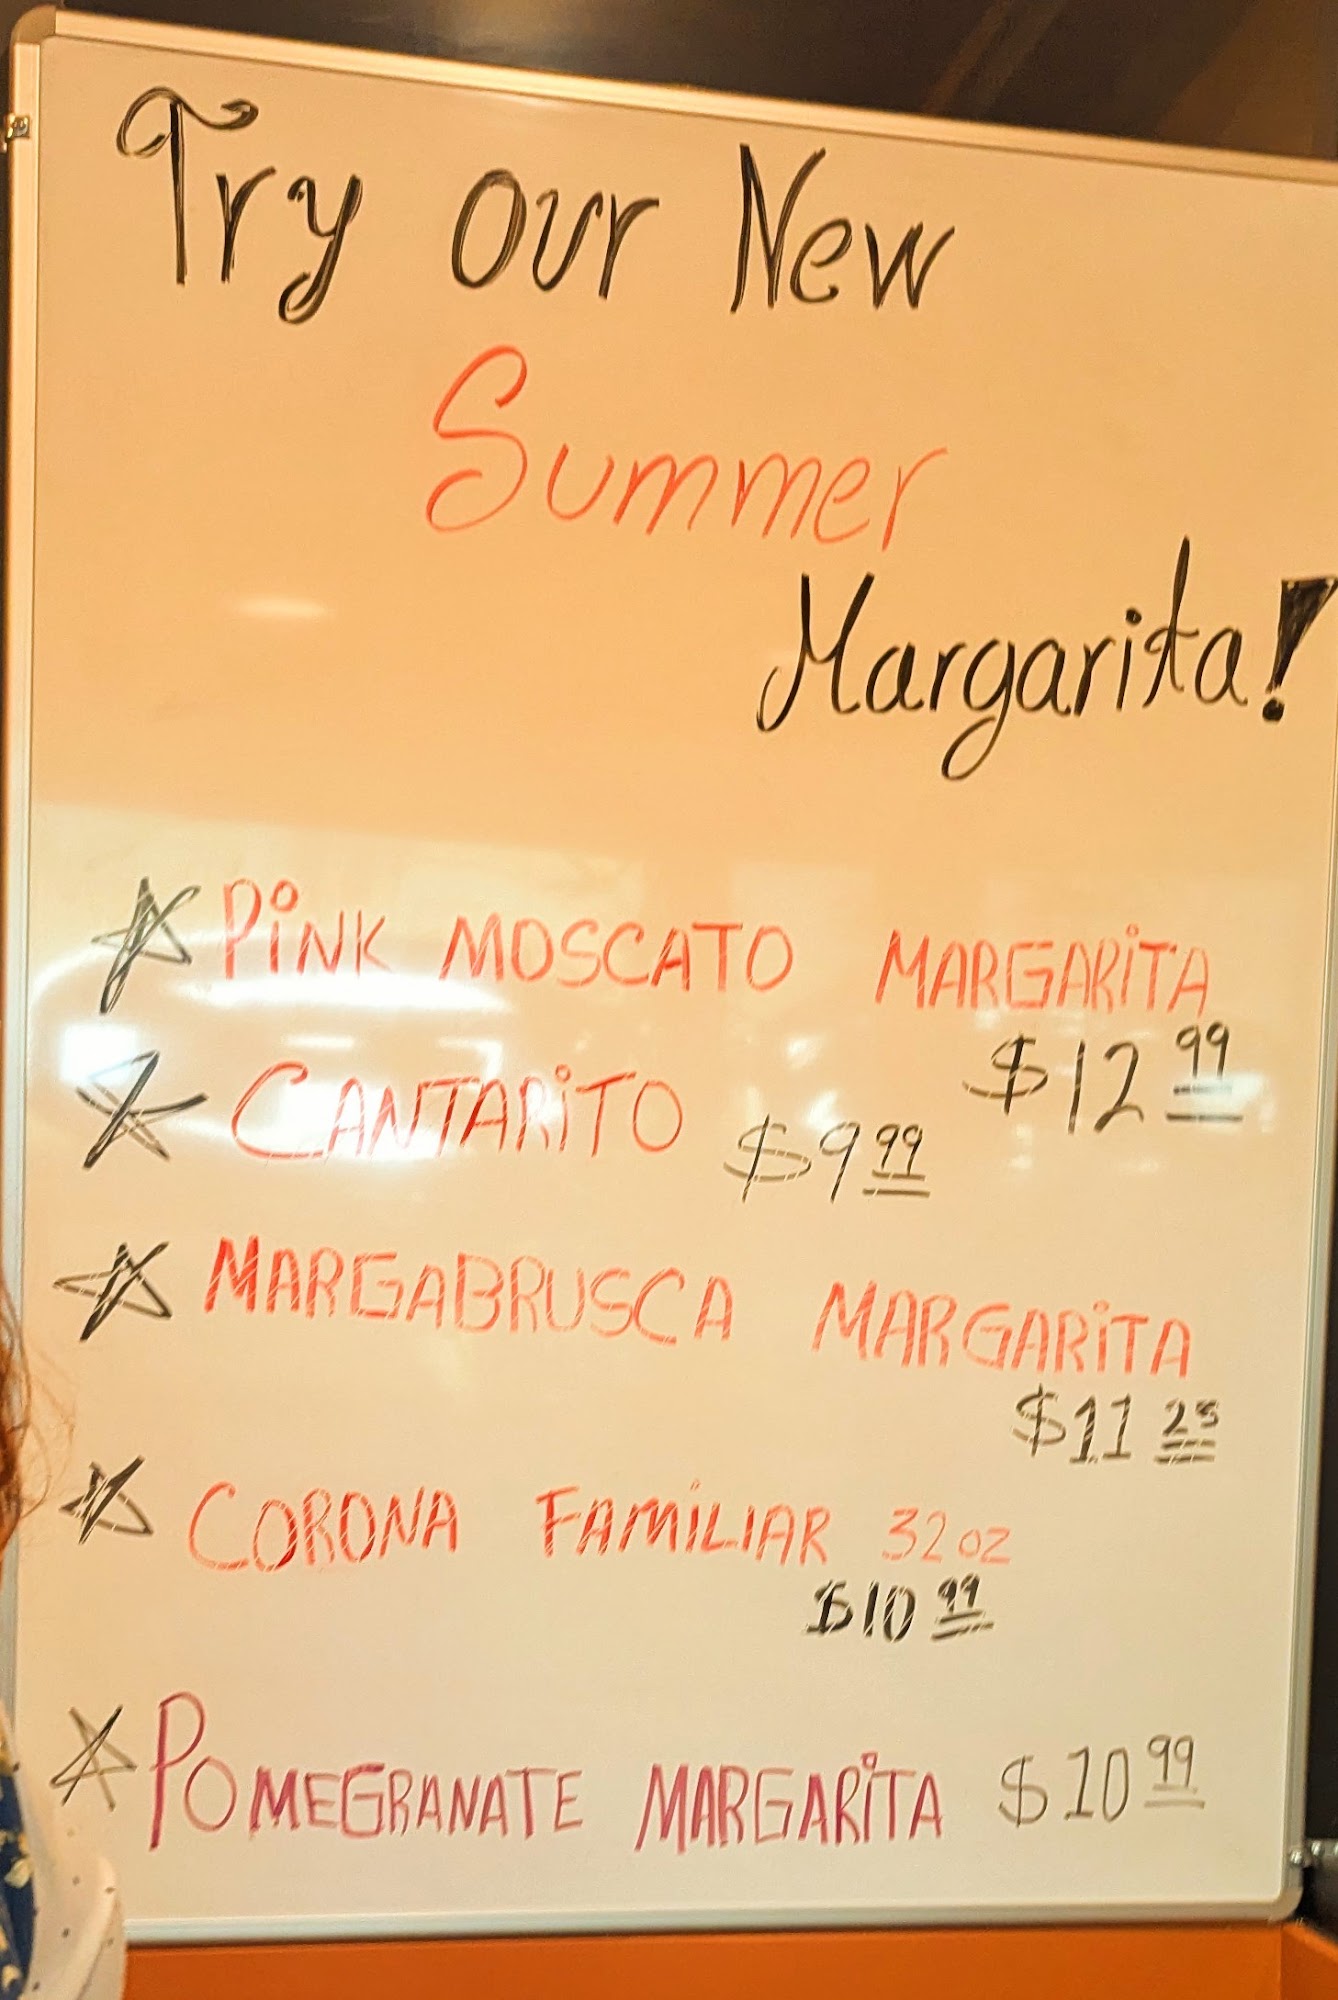 Try our New
Summer
Margarita!
PiNK MOSCATO MARGARiTA
$12 99
CANTARiTO $9 99
MARGABRUSCA MARGARiTA
$11 25
CORONA FAMiLIAR 32oz
$10 99
POMEGRANATE MARGARiTA $10 99